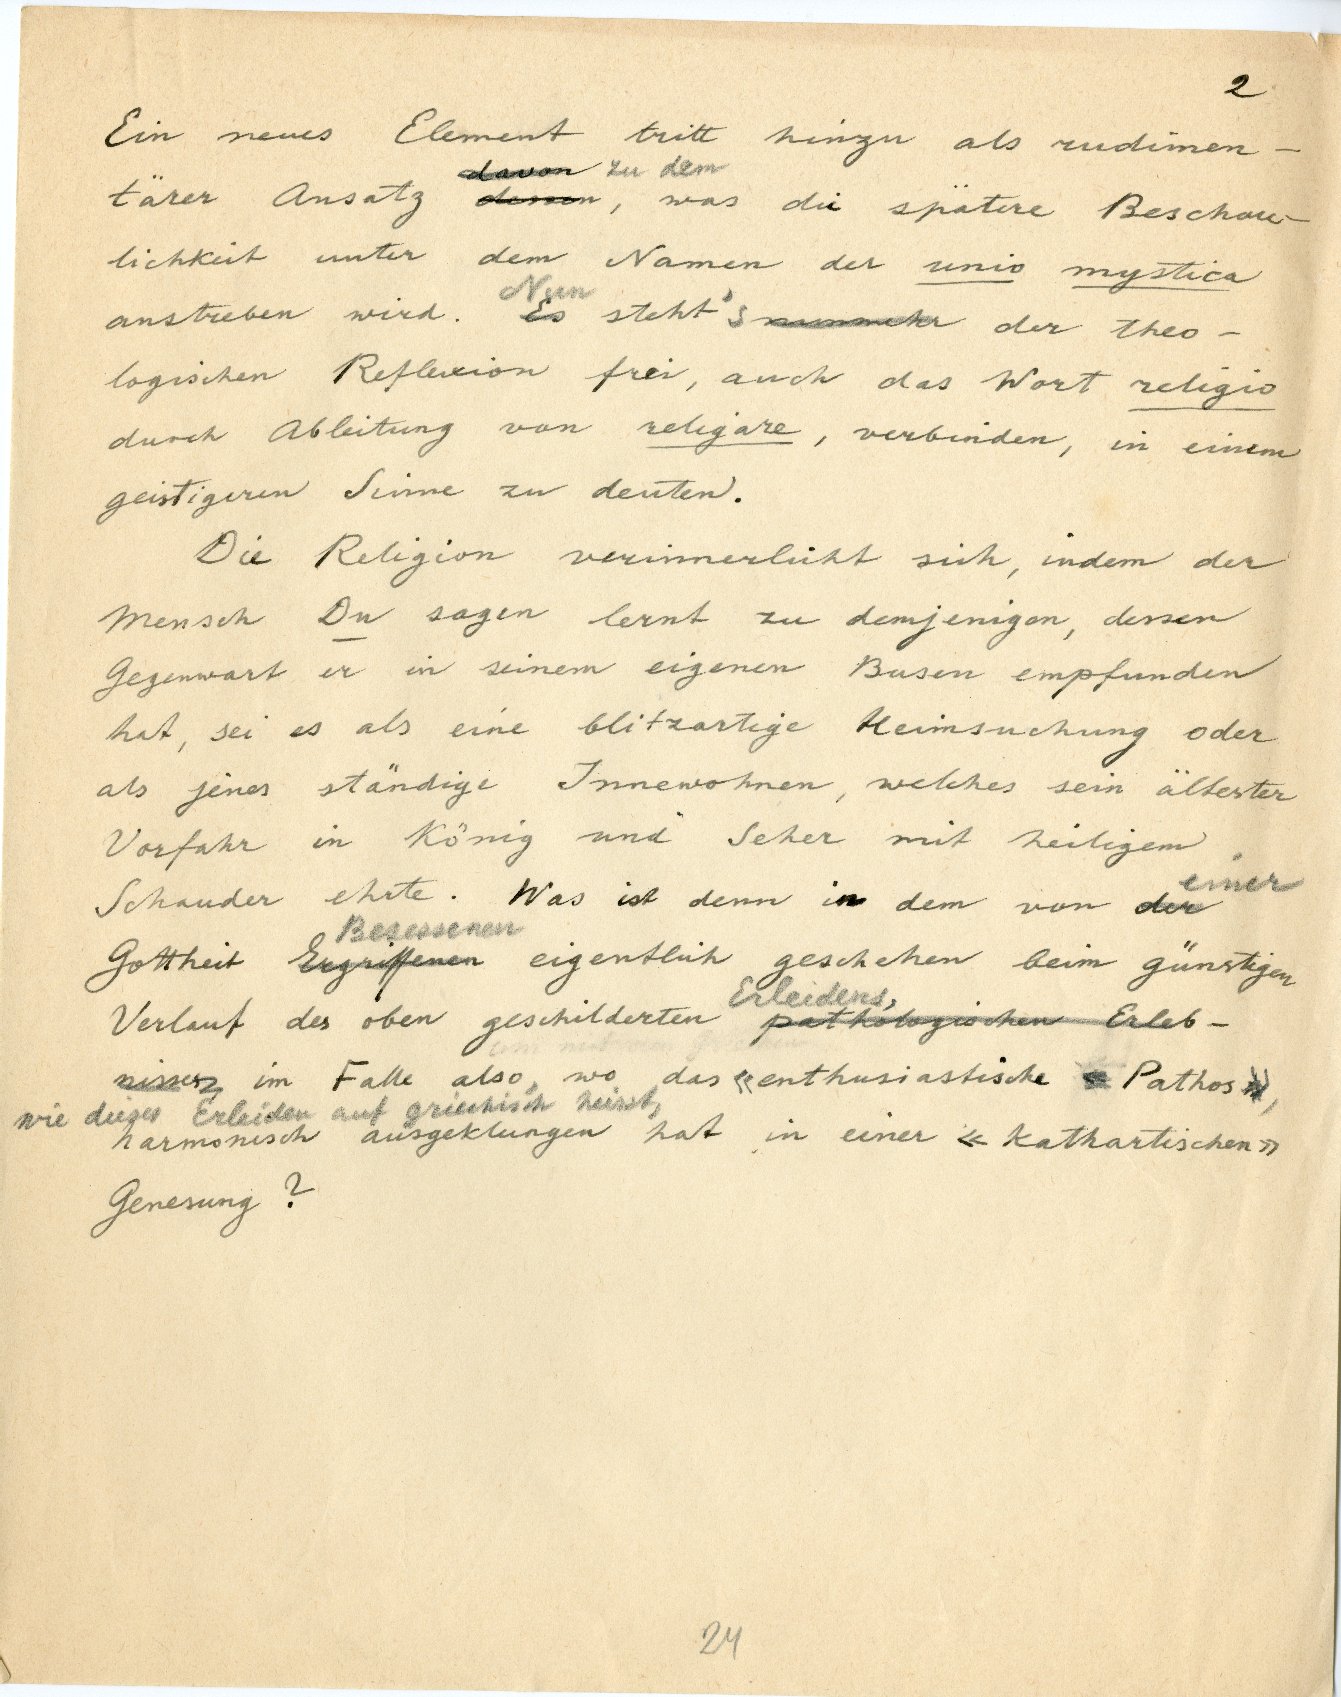 2
Ein neues Element tritt hinzu als rudimen-
davon zu dem
tärer Ansatz dessen, was die spätere Beschau-
lichkeit unter dem Namen der unio mystica
Nun
anstreben wird. Es steht's nunmehr der theo-
logischen Reflexion frei, auch das Wort religio
durch Ableitung von religare, verbinden, in einem
geistigeren Sinne zu deuten.
Die Religion verinnerlicht sich, indem der
Mensch Du sagen lernt zu demjenigen, dessen
Gegenwart er in seinem eigenen Busen empfunden
hat, sei es als eine blitzartige Heimsuchung oder
als jenes ständige Innewohnen, welches sein ältester
Vorfahr in König und Seher mit heiligem
Schauder ehrte. Was ist denn in dem von der
einer
Besessenen
Gottheit Ergriffenen eigentlich geschehen beim günstigen
Erleidens,
Verlauf des oben geschilderten pathologischen Erleb-
nisses, im Falle also, wo das «enthusiastische Pathos»,
wie dieses Erleiden auf griechisch heisst,
harmonisch ausgeklungen hat in einer «kathartischen»
Genesung?
24